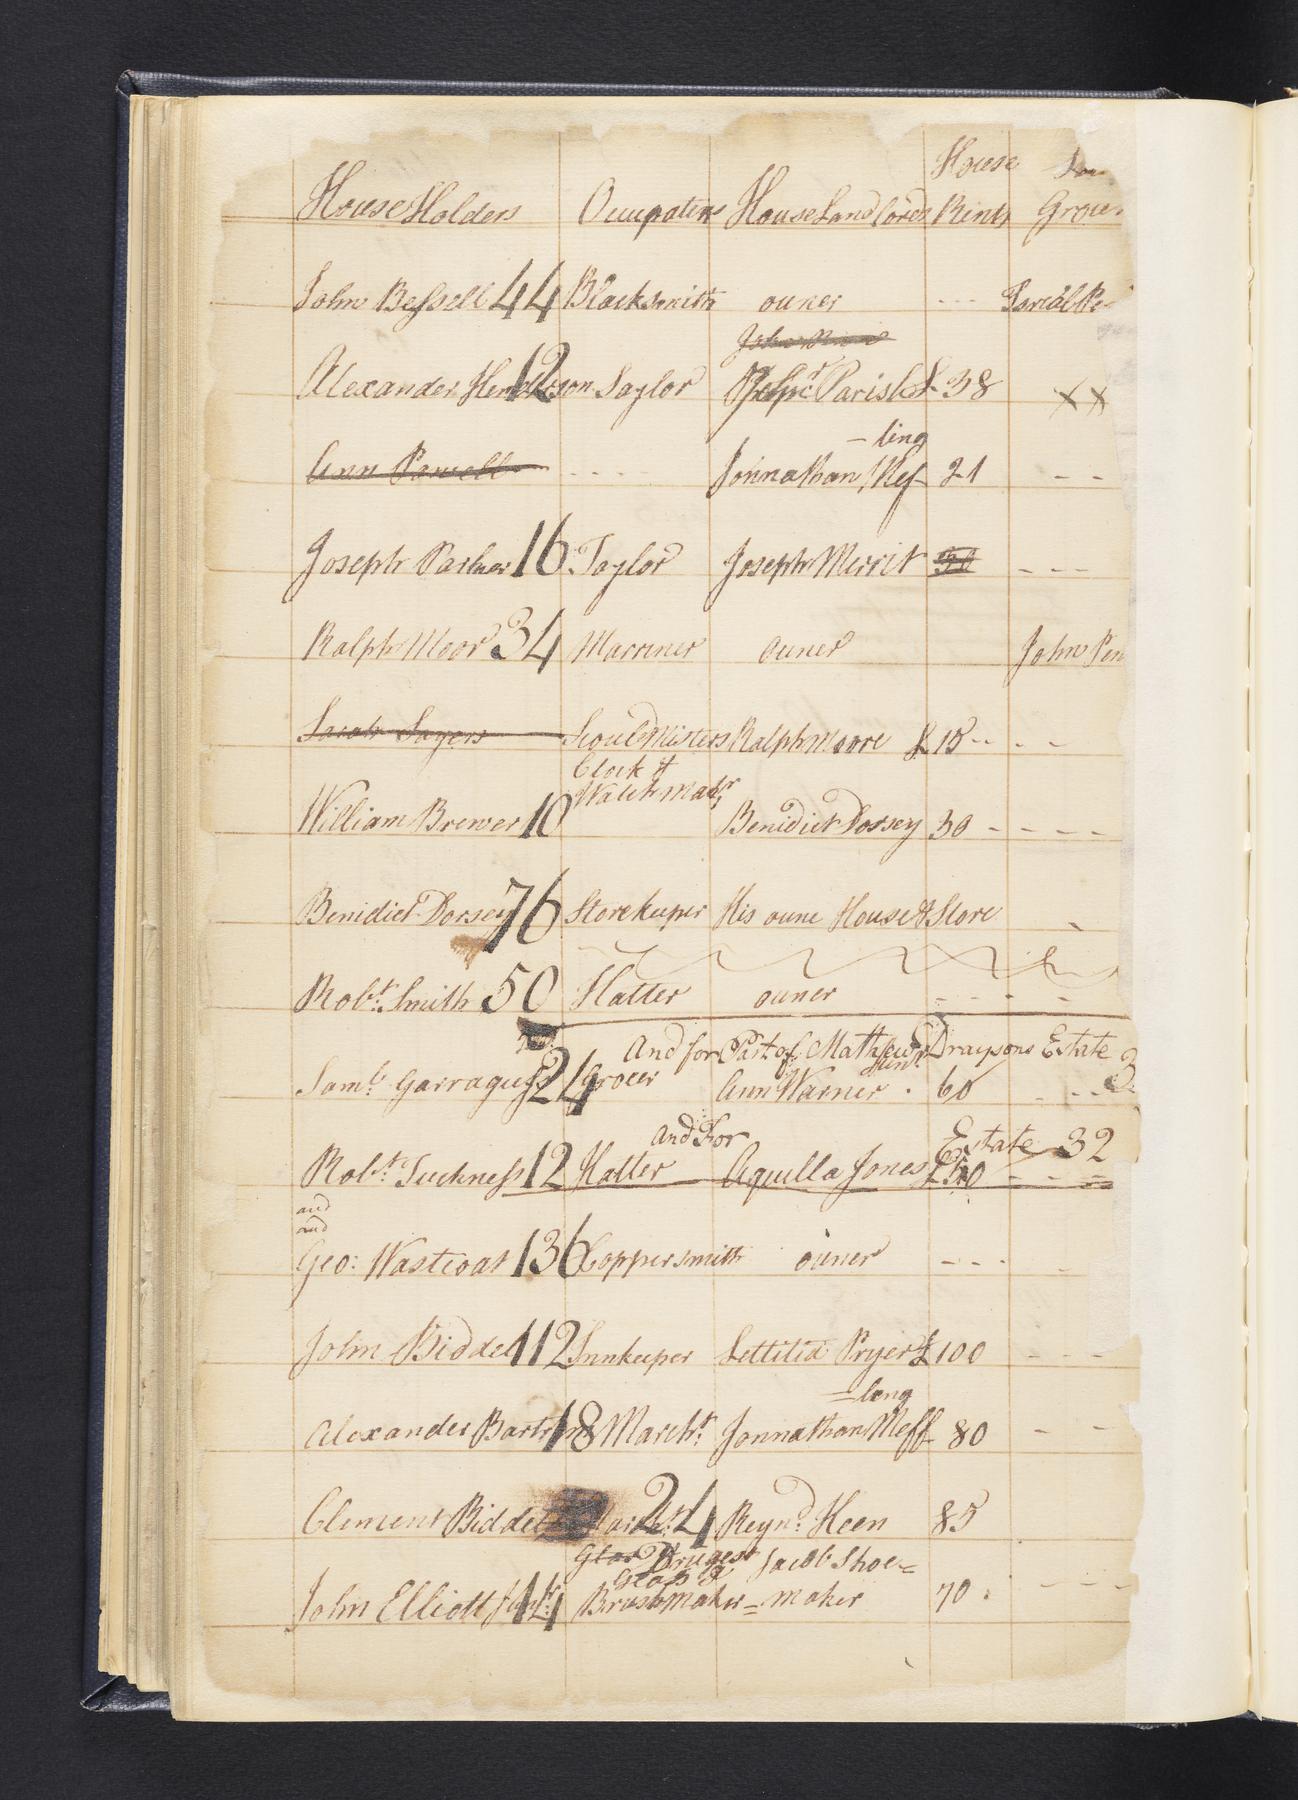 House
House Holders Occupation House Land lords Rents Grou
John Bessell 44 Blacksmith owner - - -
Alexander Henderson 12 Taylor Parish £ 38 X X
- ling
Ann Powell - - - - Jonnathan Mef 21 - -
Joseph 16 Taylor Joseph Merrit 50 - - -
Ralph Moor 34 Marriner owner John Pen
Sarah Sayers Ralph Moore £ 15 - - - -
Clock &
Watchmakr
William Brewer 10 Benidict Dorsey 30 - - - -
Benidict Dorsey 76 Storekeeper His oune House & Store
Robt. Smith 50 Hatter owner - - - -
And for Part of Mathew Draysons Estate 3
Saml. Garragues 24 Grocer Ann Warner 60 - - -
And For Estate 32
Robt. Tuckness 12 Hatter Aquilla Jones - - -
and
and
Geo: Wastcoat 136 Coppersmith owner - - -
John Biddel 112 Innkeeper Lettitia Pryer £ 100 - - -
= leng
Alexander Bartram 18 Marcht. Jonnathan Meff 80 - -
Clement Biddel 24 Reynd. Keen 85
Glas Drugest Jacob Shoe=
Glass &
John Elliott Junr. 14 Brushmaker = maker 70 - - -